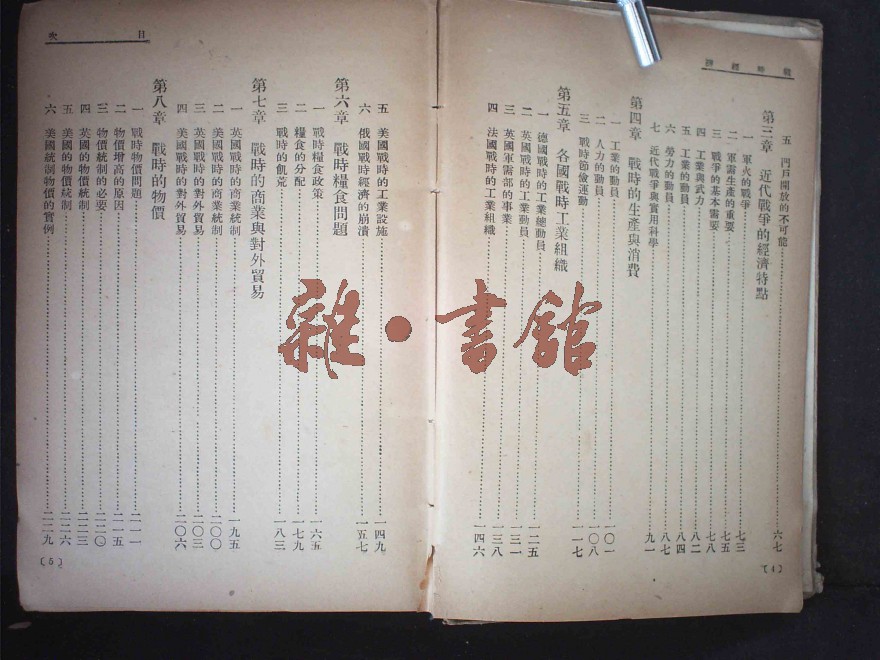 戰時經濟
五 門戶開放的不可能 六七
第三章 近代戰爭的經濟特點
一 軍火的戰爭 七三
二 軍需生產的重要 七五
三 戰爭的基本需要 七八
四 工業與武力 八二
五 工業的動員 八四
六 勞力的動員 八七
七 近代戰爭與實用科學 九一
第四章 戰時的生產與消費
一 工業的動員 一〇一
二 人力的動員 一〇八
三 戰時節儉運動 一一七
第五章 各國戰時工業組織
一 德國戰時的工業總動員 一二五
二 英國戰時的工業動員 一三一
三 英國軍需部的事業 一三八
四 法國戰時的工業組織 一四六
(4)
目次
五 美國戰時的工業設施 一四九
六 俄國戰時經濟的崩潰 一五七
第六章 戰時糧食問題
一 戰時糧食政策 一六五
二 糧食的分配 一七九
三 戰時的飢荒 一八三
第七章 戰時的商業與對外貿易
一 英國戰時的商業統制 一九五
二 美國戰時的商業統制 二〇〇
三 英國戰時的對外貿易 二〇三
四 美國戰時的對外貿易 二〇六
第八章 戰時的物價
一 戰時物價問題 二一一
二 物價增高的原因 二一五
三 物價統制的必要 二二〇
四 英國的物價統制 二二三
五 美國的物價統制 二二六
六 美國統制物價的實例 二二九
(5)
雜·書館